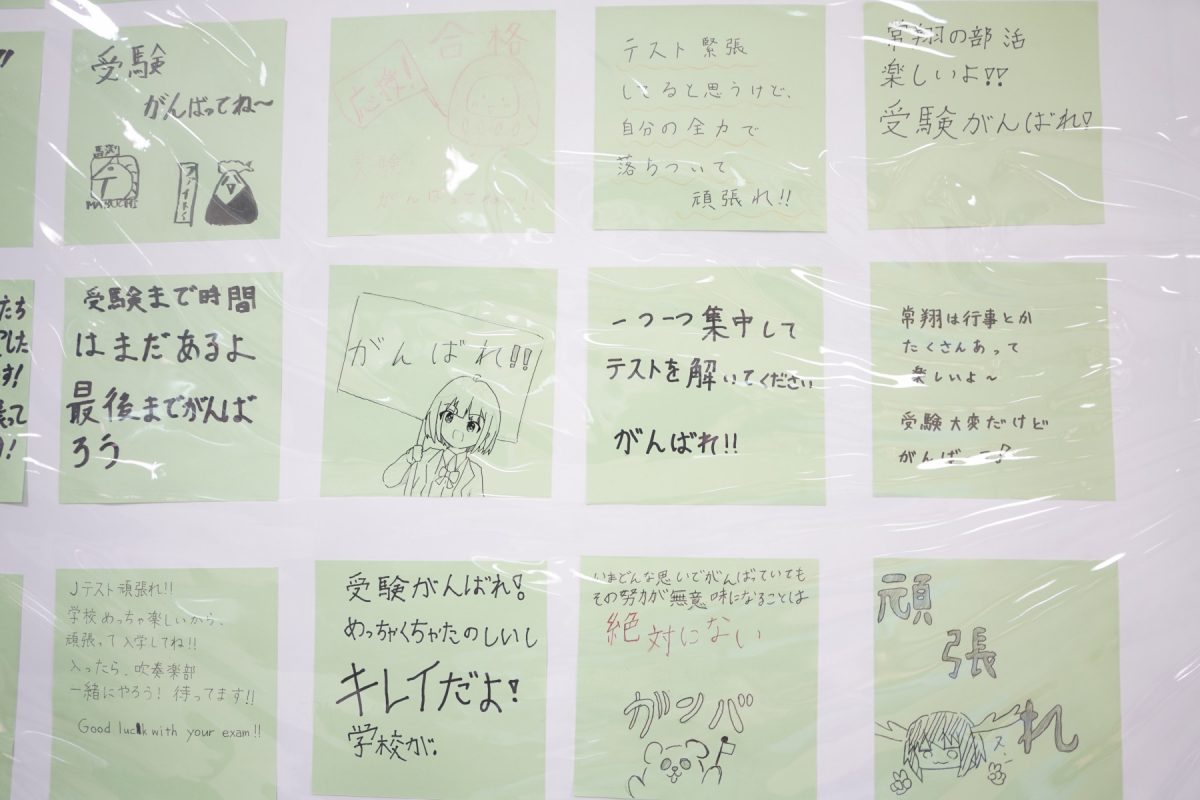 受験
がんばってね〜
合格
応援!
受験
がんばってね〜!!
テスト緊張
してると思うけど、
自分の全力で
落ちついて
頑張れ!!
常翔の部活
楽しいよ!!
受験がんばれ!
たち
した
す!
って
!
受験まで時間
はまだあるよ
最後までがんば
ろう
がんばれ!!
一つ一つ集中して
テストを解いてください
がんばれ!!
常翔は行事とか
たくさんあって
楽しいよ〜
受験大変だけど
がんば
Jテスト頑張れ!!
学校めっちゃ楽しいから、
頑張って入学してね!!
入ったら、吹奏楽部
一緒にやろう!待ってます!!
Good luck with your exam!!
受験がんばれ!
めっちゃくちゃたのしいし
キレイだよ!
学校が。
いまどんな思いでがんばっていても
その努力が無意味になることは
絶対にない
ガンバ
頑
張
れ